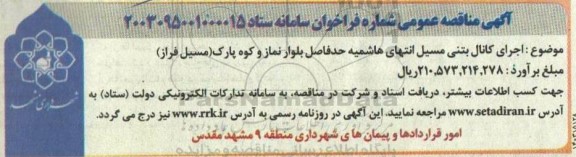 آگهی مناقصه عمومی شماره فراخوان سامانه ستاد ۲۰۰۳۰۹۵۰۰۱۰۰۰۰۱۵
موضوع : اجرای کانال بتنی مسیل انتهای هاشمیه حدفاصل بلوار نماز و کوه پارک(مسیل فراز)
مبلغ برآورد : ۲۱۰,۵۷۳,۲۱۴,۲۷۸ریال
جهت کسب اطلاعات بیشتر، دریافت اسناد و شرکت در مناقصه، به سامانه تدارکات الکترونیکی دولت (ستاد) به
آدرس www.setadiran.ir مراجعه نمایید. این آگهی در روزنامه رسمی به آدرس www.rrk.ir نیز درج می گردد.
امور قراردادها و پیمان های شهرداری منطقه ۹ مشهد مقدس